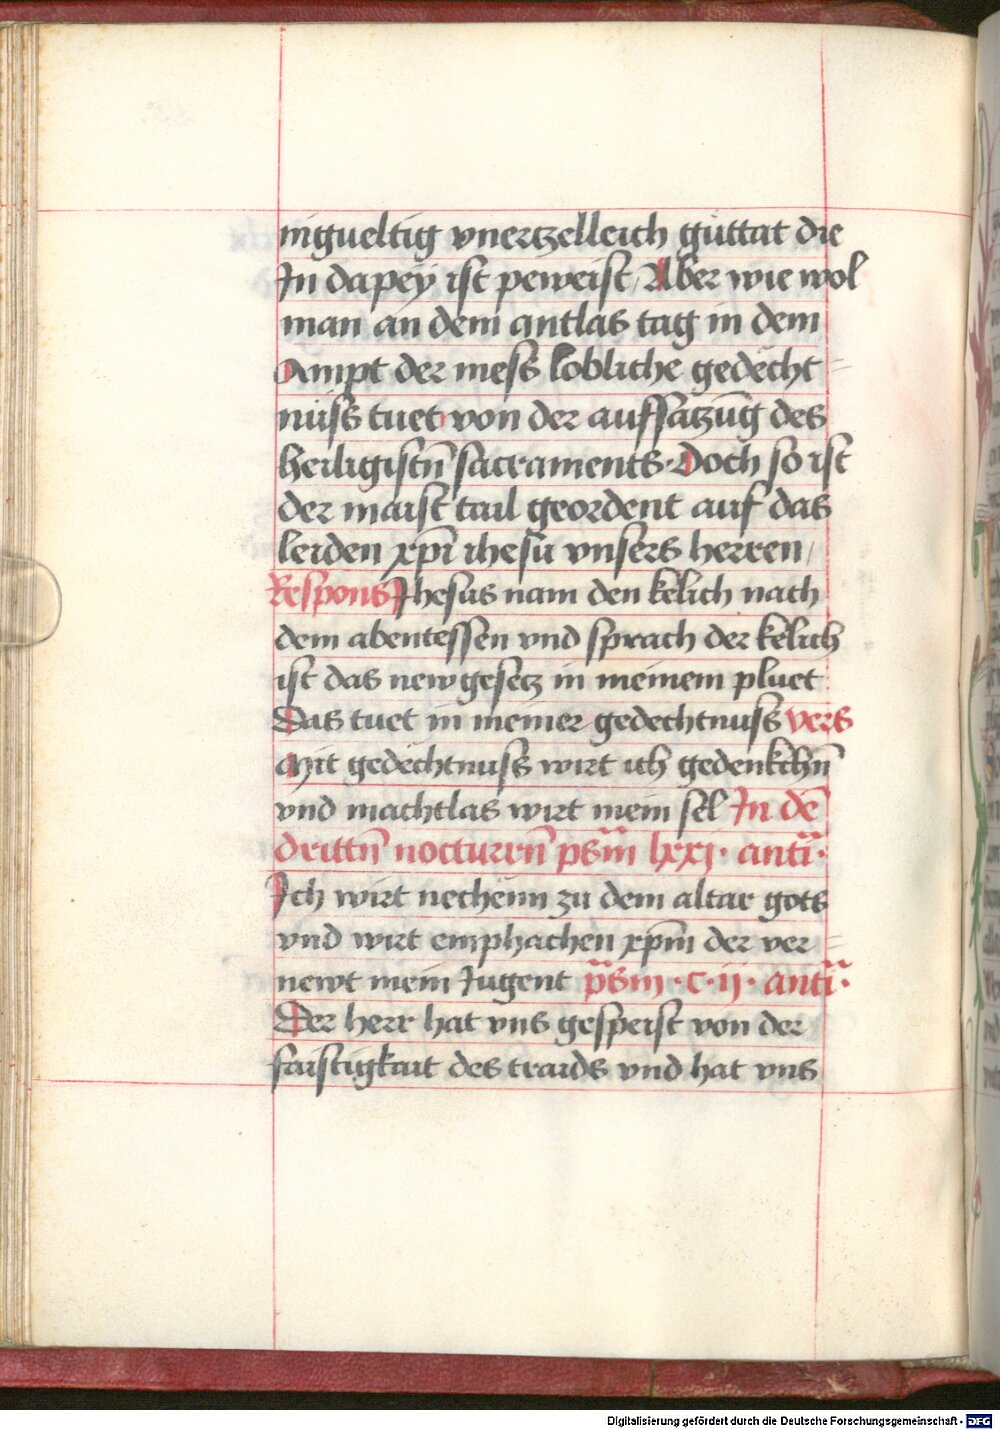 nigueltig vnertzelleich guttat die
In dapeÿ ist peweist / Aber wie wol
man an dem antlas tag in dem
Ampt der mess lobliche gedächt=
nüss tuet von der auffsatzūg des
heiligistn̄ sacraments · Doch so ist
der maist tail geordent auf das
leiden xp̄i ihesu vnsers herren /
Respons Jhesus nam den kelich nach
dem abentessen vnd sprach der kelich
ist das new gesetz in meinem pluet
Das tuet in meiner gedechtnuss vers
Mit gedächtnuss wirt ich gedenkchn̄
vnd machtlas wirt mein sel In dē
drittn̄ nocturrn̄ psm̄ lxxj · anti̅ ·
Ich wirt nechenn zu dem altar gots
vnd wirt emphachen xp̄m der ver=
newt mein Jugent psm̄ · c · ij · anti̅ ·
Der herr hat vns gespeist von der
faistigkait des traids vnd hat vns
Digitalisierung gefördert durch die Deutsche Forschungsgemeinschaft - DFG